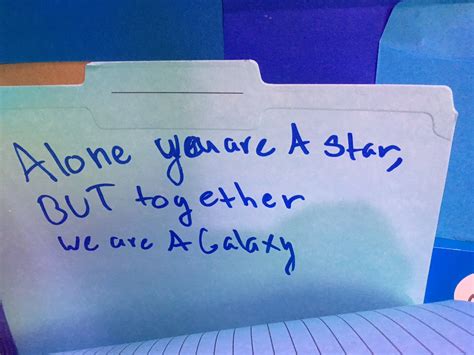 Alone you are A star,
BUT together
we are A Galaxy